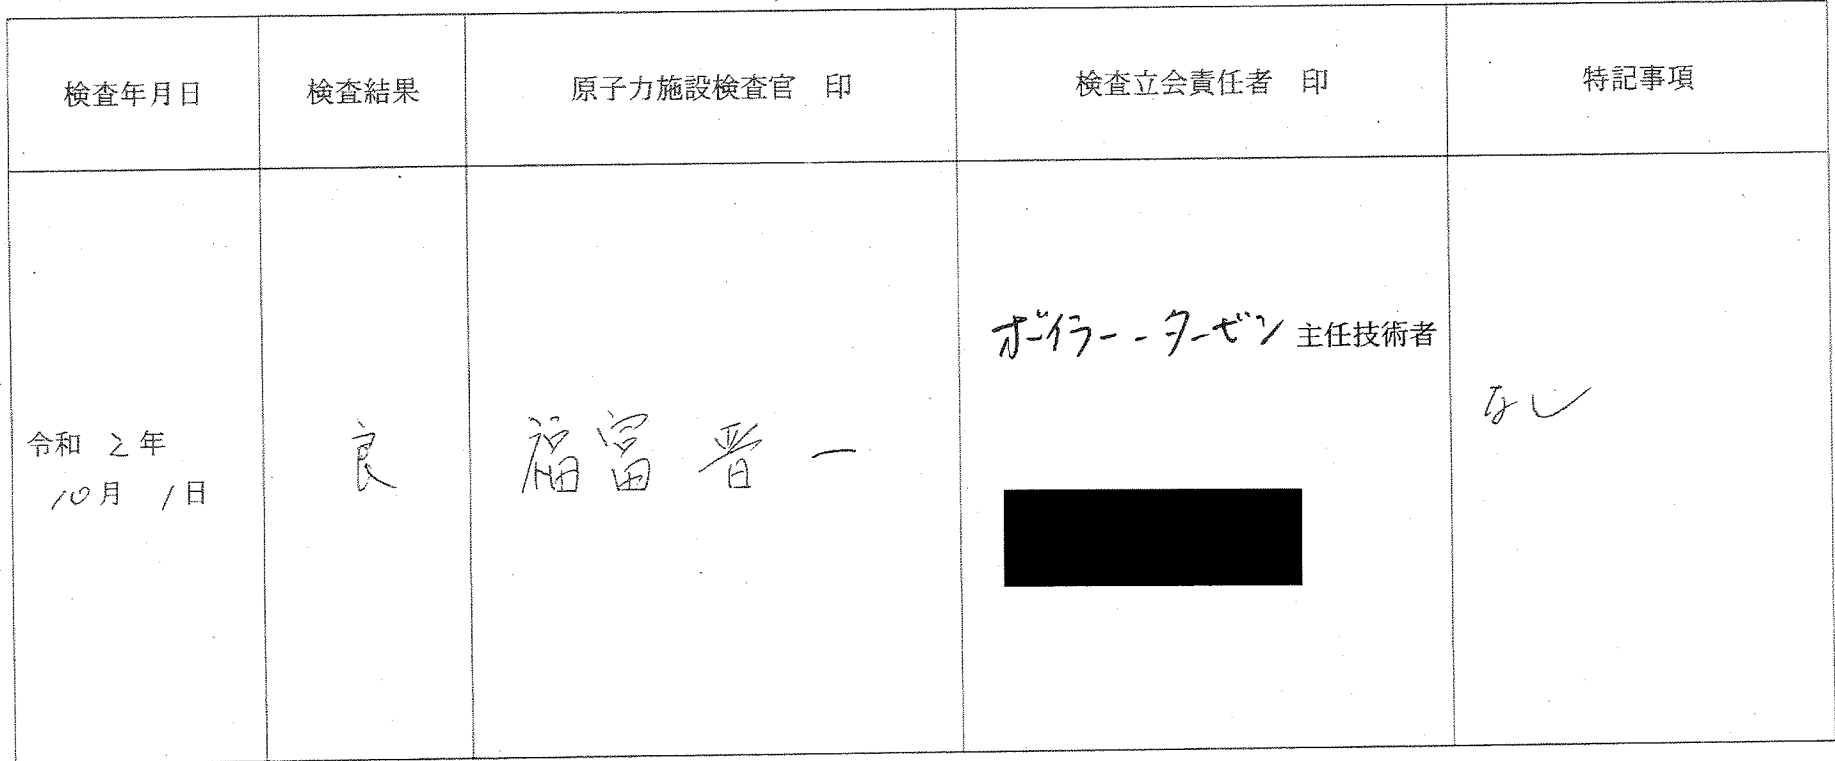 検査年月日
検査結果
原子力施設検査官 印
検査立会責任者 印
特記事項
令和 2年
10月 1日
良
福冨 晋一
ボイラー・タービン 主任技術者
なし